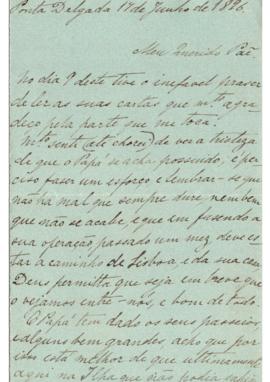 Ponta Delgada 17 de Junho de 1896.
Meu Querido Pai.
No dia 9 deste tive o inefavel praser
de ler as suas cartas que m.to agra-
deço pela parte que me toca.
M.to senti (até chorei) de ver a tristeza
de que o Papá se acha possuido, é per-
ciso faser um esforço e lembrar-se que
não ha mal que sempre dure, nem bem
que não se acabe, e que em fasendo a
sua operação passado um mez deve es-
tar a caminho de Lisboa e da sua casa
Deus permitta que seja em breve que
o vejamos entre-nós, e bom de todo.
O Papá tem dado os seus passeios,
e alguns bem grandes, acho que por
isso está melhor do que ultimamente
aqui na Ilha que não podia